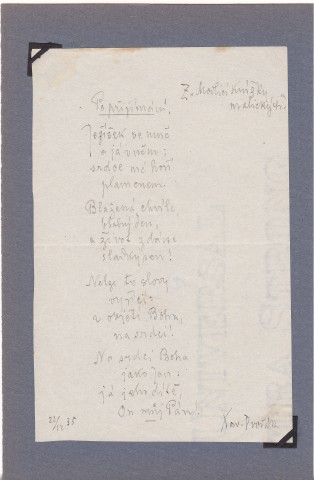 Z. Matčiny knížky
maličký
Po přijímání.
Ježíšek ve mně
a já v něm:
srdce mé hoří
plamenem.
Blažená chvíle
den,
a život zdá se
sladký sen!
Nelze to slovy
vyříct:
v objetí Boha,
na srdci!
Na srdci Boha
jako Jan.
já jeho dítě,
On můj Pán.
22/12 35
Xav. Dvořák